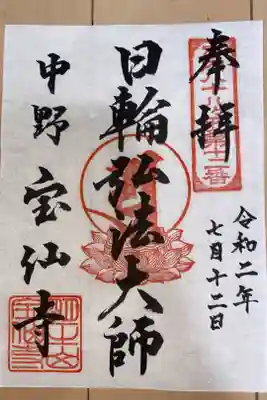 奉拝
日輪弘法大師
中野 宝仙寺
令和二年
七月十二日